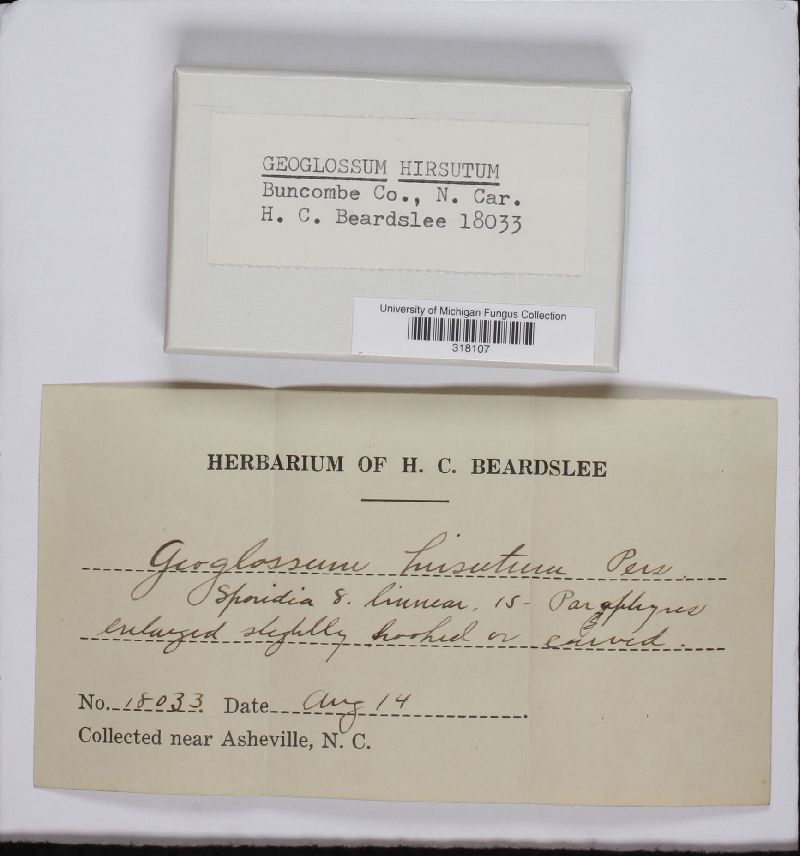 GEOGLOSSUM HIRSUTUM
Buncombe Co., N. Car.
H. C. Beardslee 18033
University of Michigan Fungus Collection
318107
HERBARIUM OF H. C. BEARDSLEE
Geoglossum hirsutum Pers.
Sporidia 8. linnear, 15- Paraphyses
enlarged slightly hooked or curved.
No. 18033 Date Aug 14
Collected near Asheville, N. C.